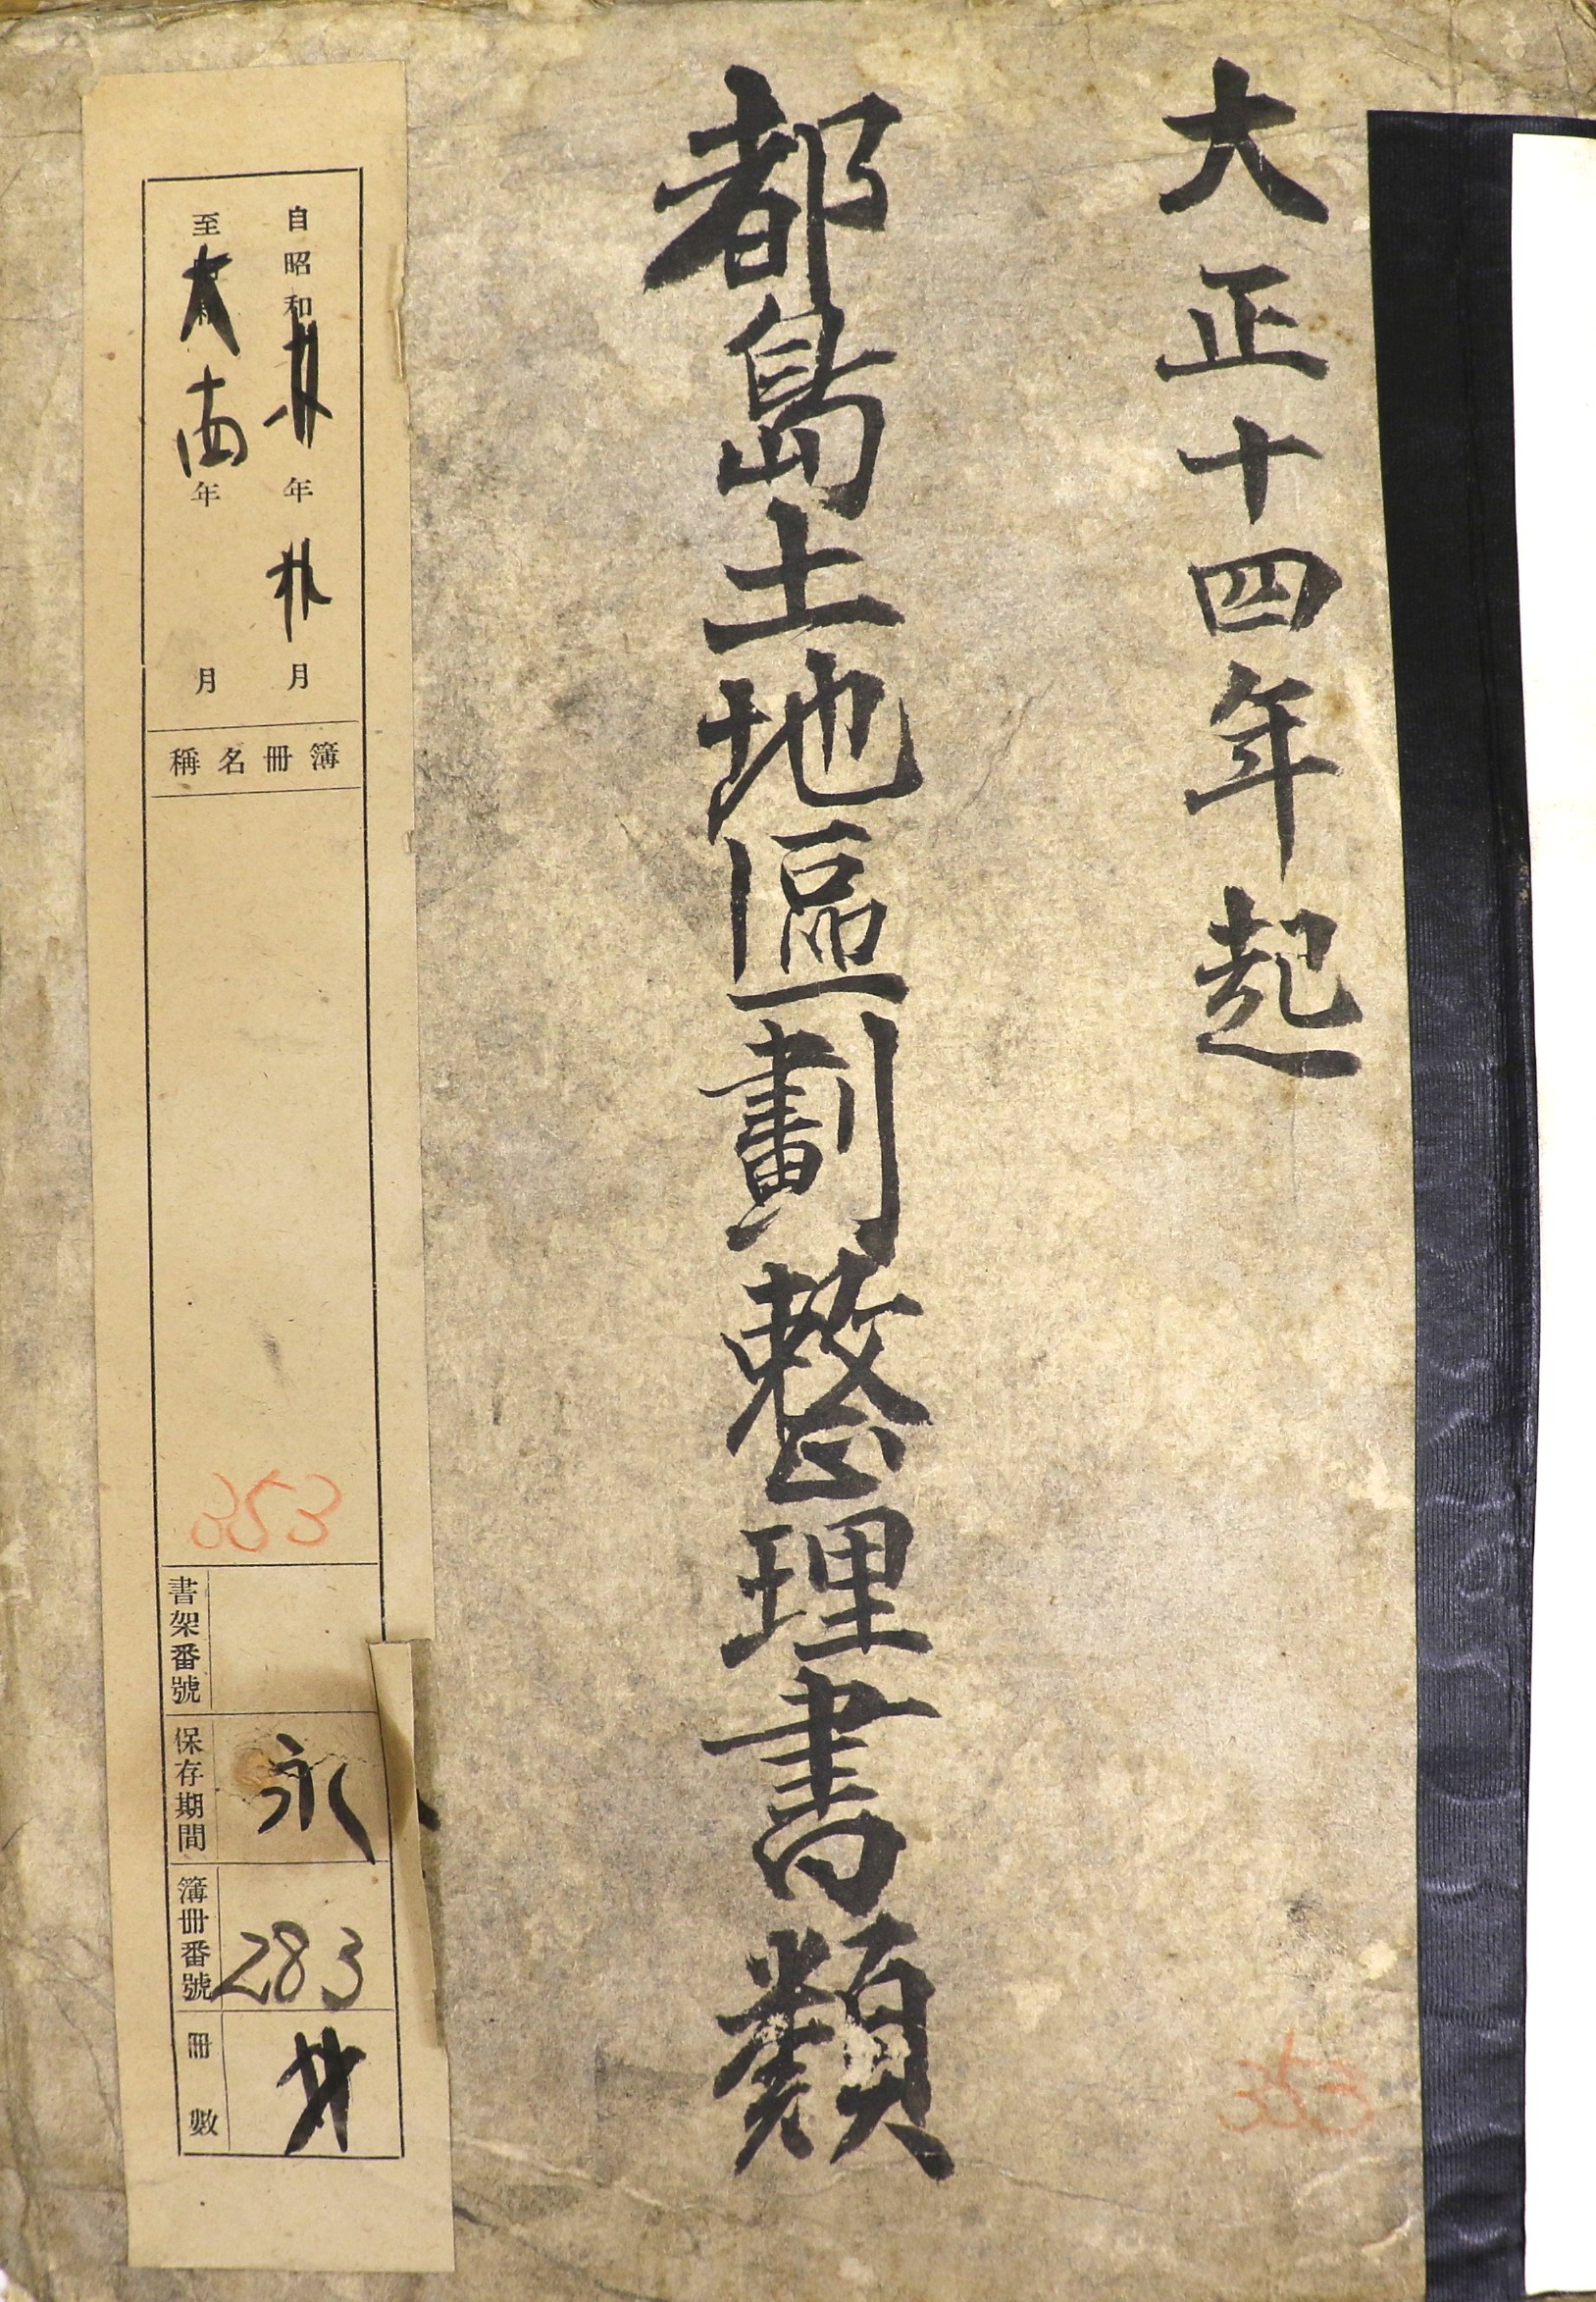 大正十四年起
都島土地區劃整理書類
353
自昭和 年 月
至大十四年 月
簿冊名稱
353
書架番號
保存期間
永
簿冊番號
283
冊數